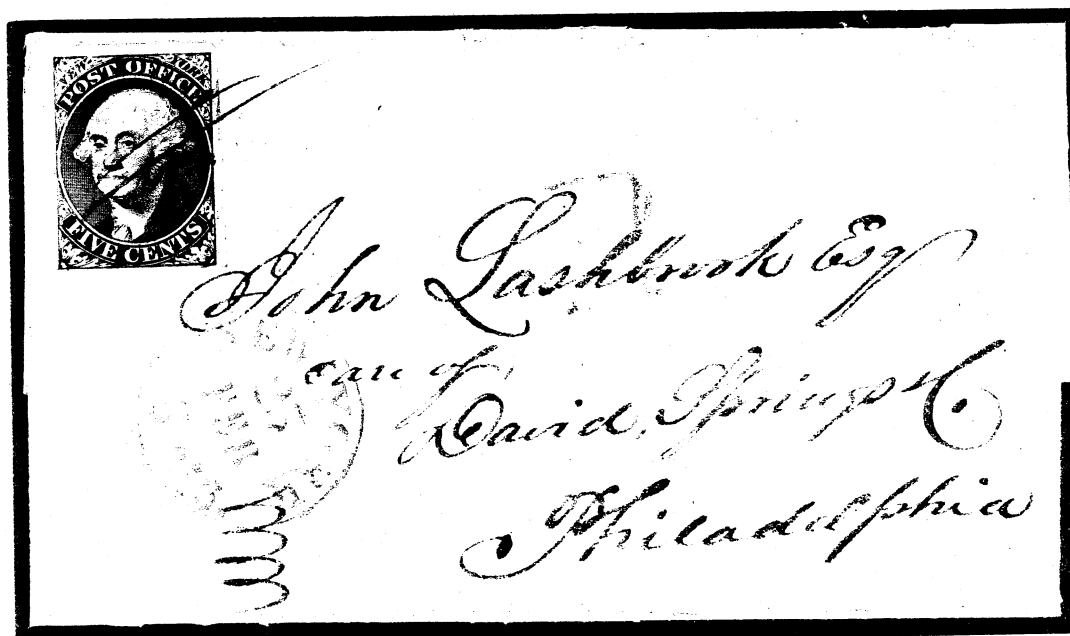 NEW YORK
POST OFFICE
FIVE CENTS
John Lashbrook Esq
care of
David Springs & Co
Philadelphia